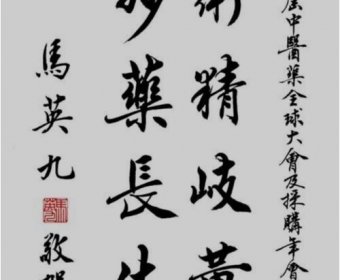 中醫藥全球大會及採購年會
術精岐黃
妙藥長生
馬英九
敬賀